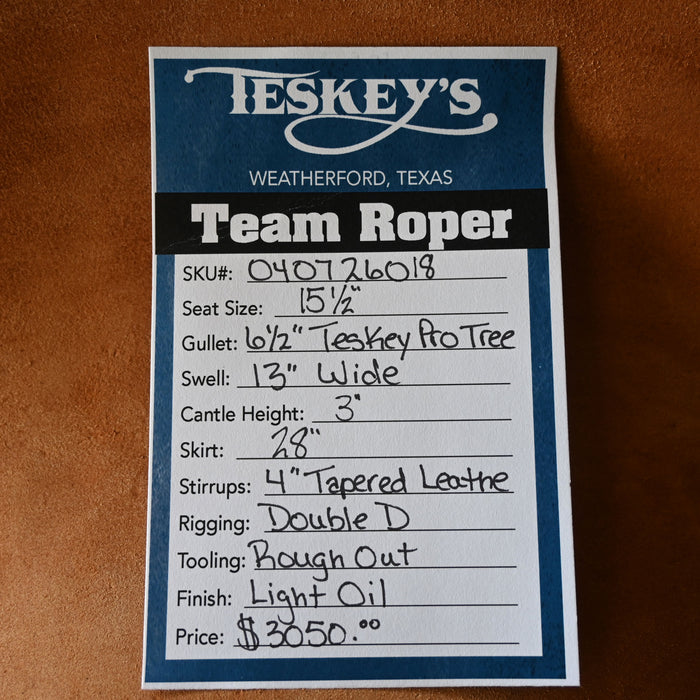 TESKEY'S
WEATHERFORD, TEXAS
Team Roper
SKU#: 040726018
Seat Size: 15 1/2"
Gullet: 6 1/2" Teskey Pro Tree
Swell: 13" Wide
Cantle Height: 3"
Skirt: 28"
Stirrups: 4" Tapered Leathe
Rigging: Double D
Tooling: Rough Out
Finish: Light Oil
Price: $3050.00